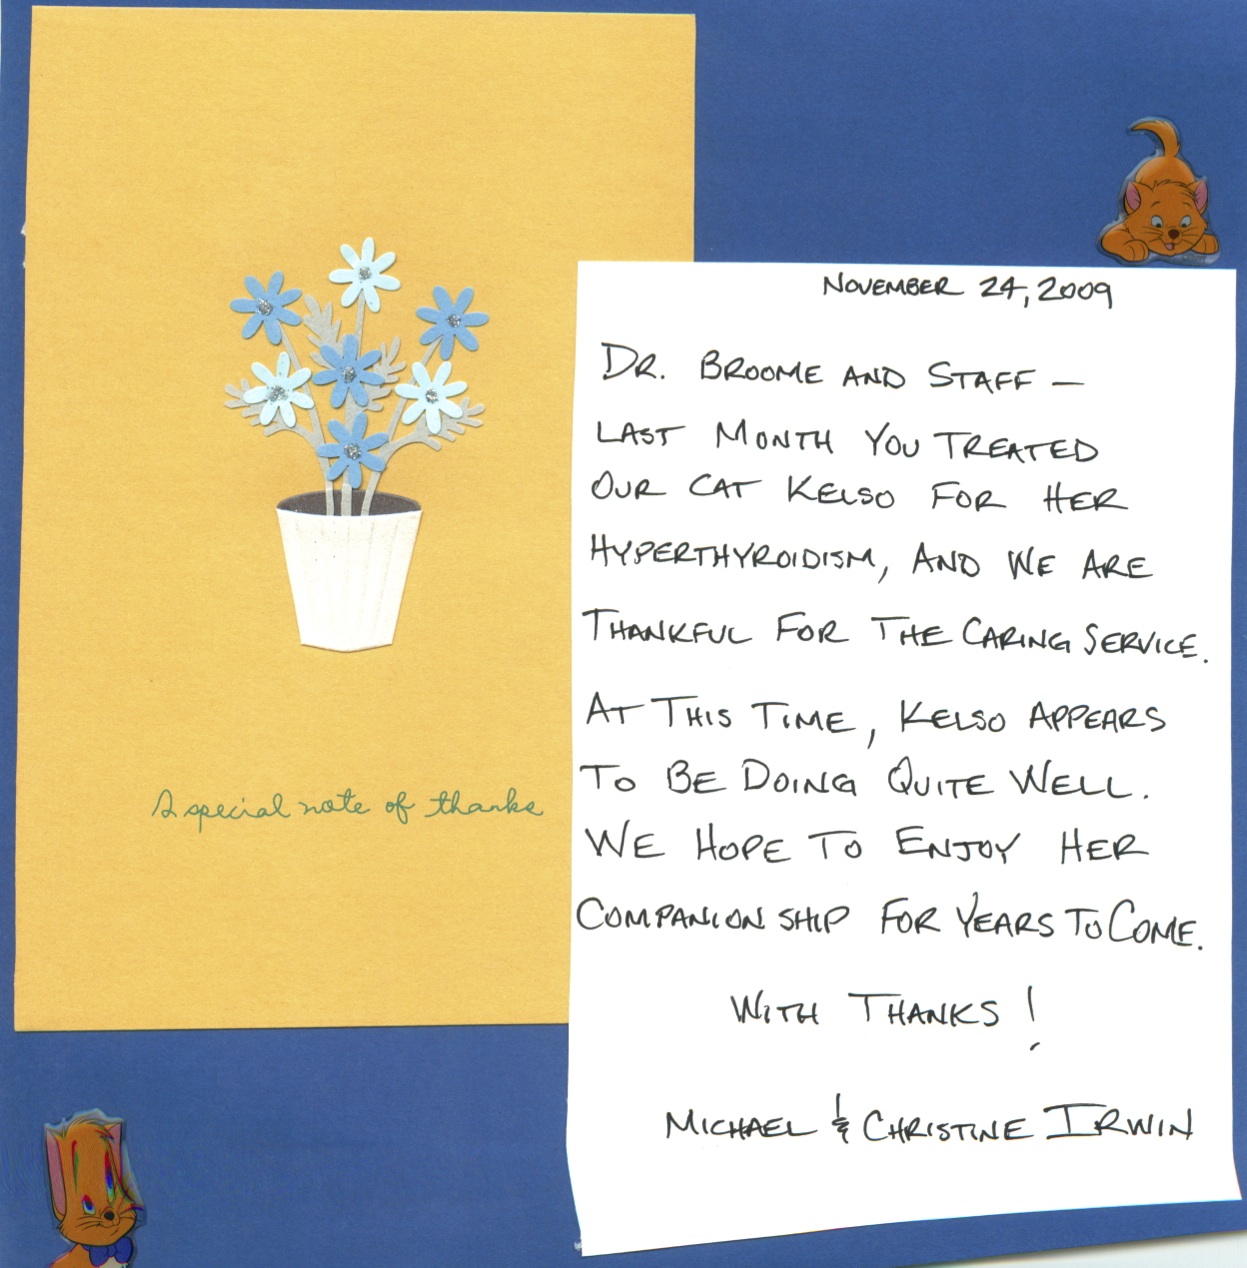 A special note of thanks
NOVEMBER 24, 2009
DR. BROOME AND STAFF —
LAST MONTH YOU TREATED
OUR CAT KELSO FOR HER
HYPERTHYROIDISM, AND WE ARE
THANKFUL FOR THE CARING SERVICE.
AT THIS TIME, KELSO APPEARS
TO BE DOING QUITE WELL.
WE HOPE TO ENJOY HER
COMPANIONSHIP FOR YEARS TO COME.
WITH THANKS!
MICHAEL & CHRISTINE IRWIN